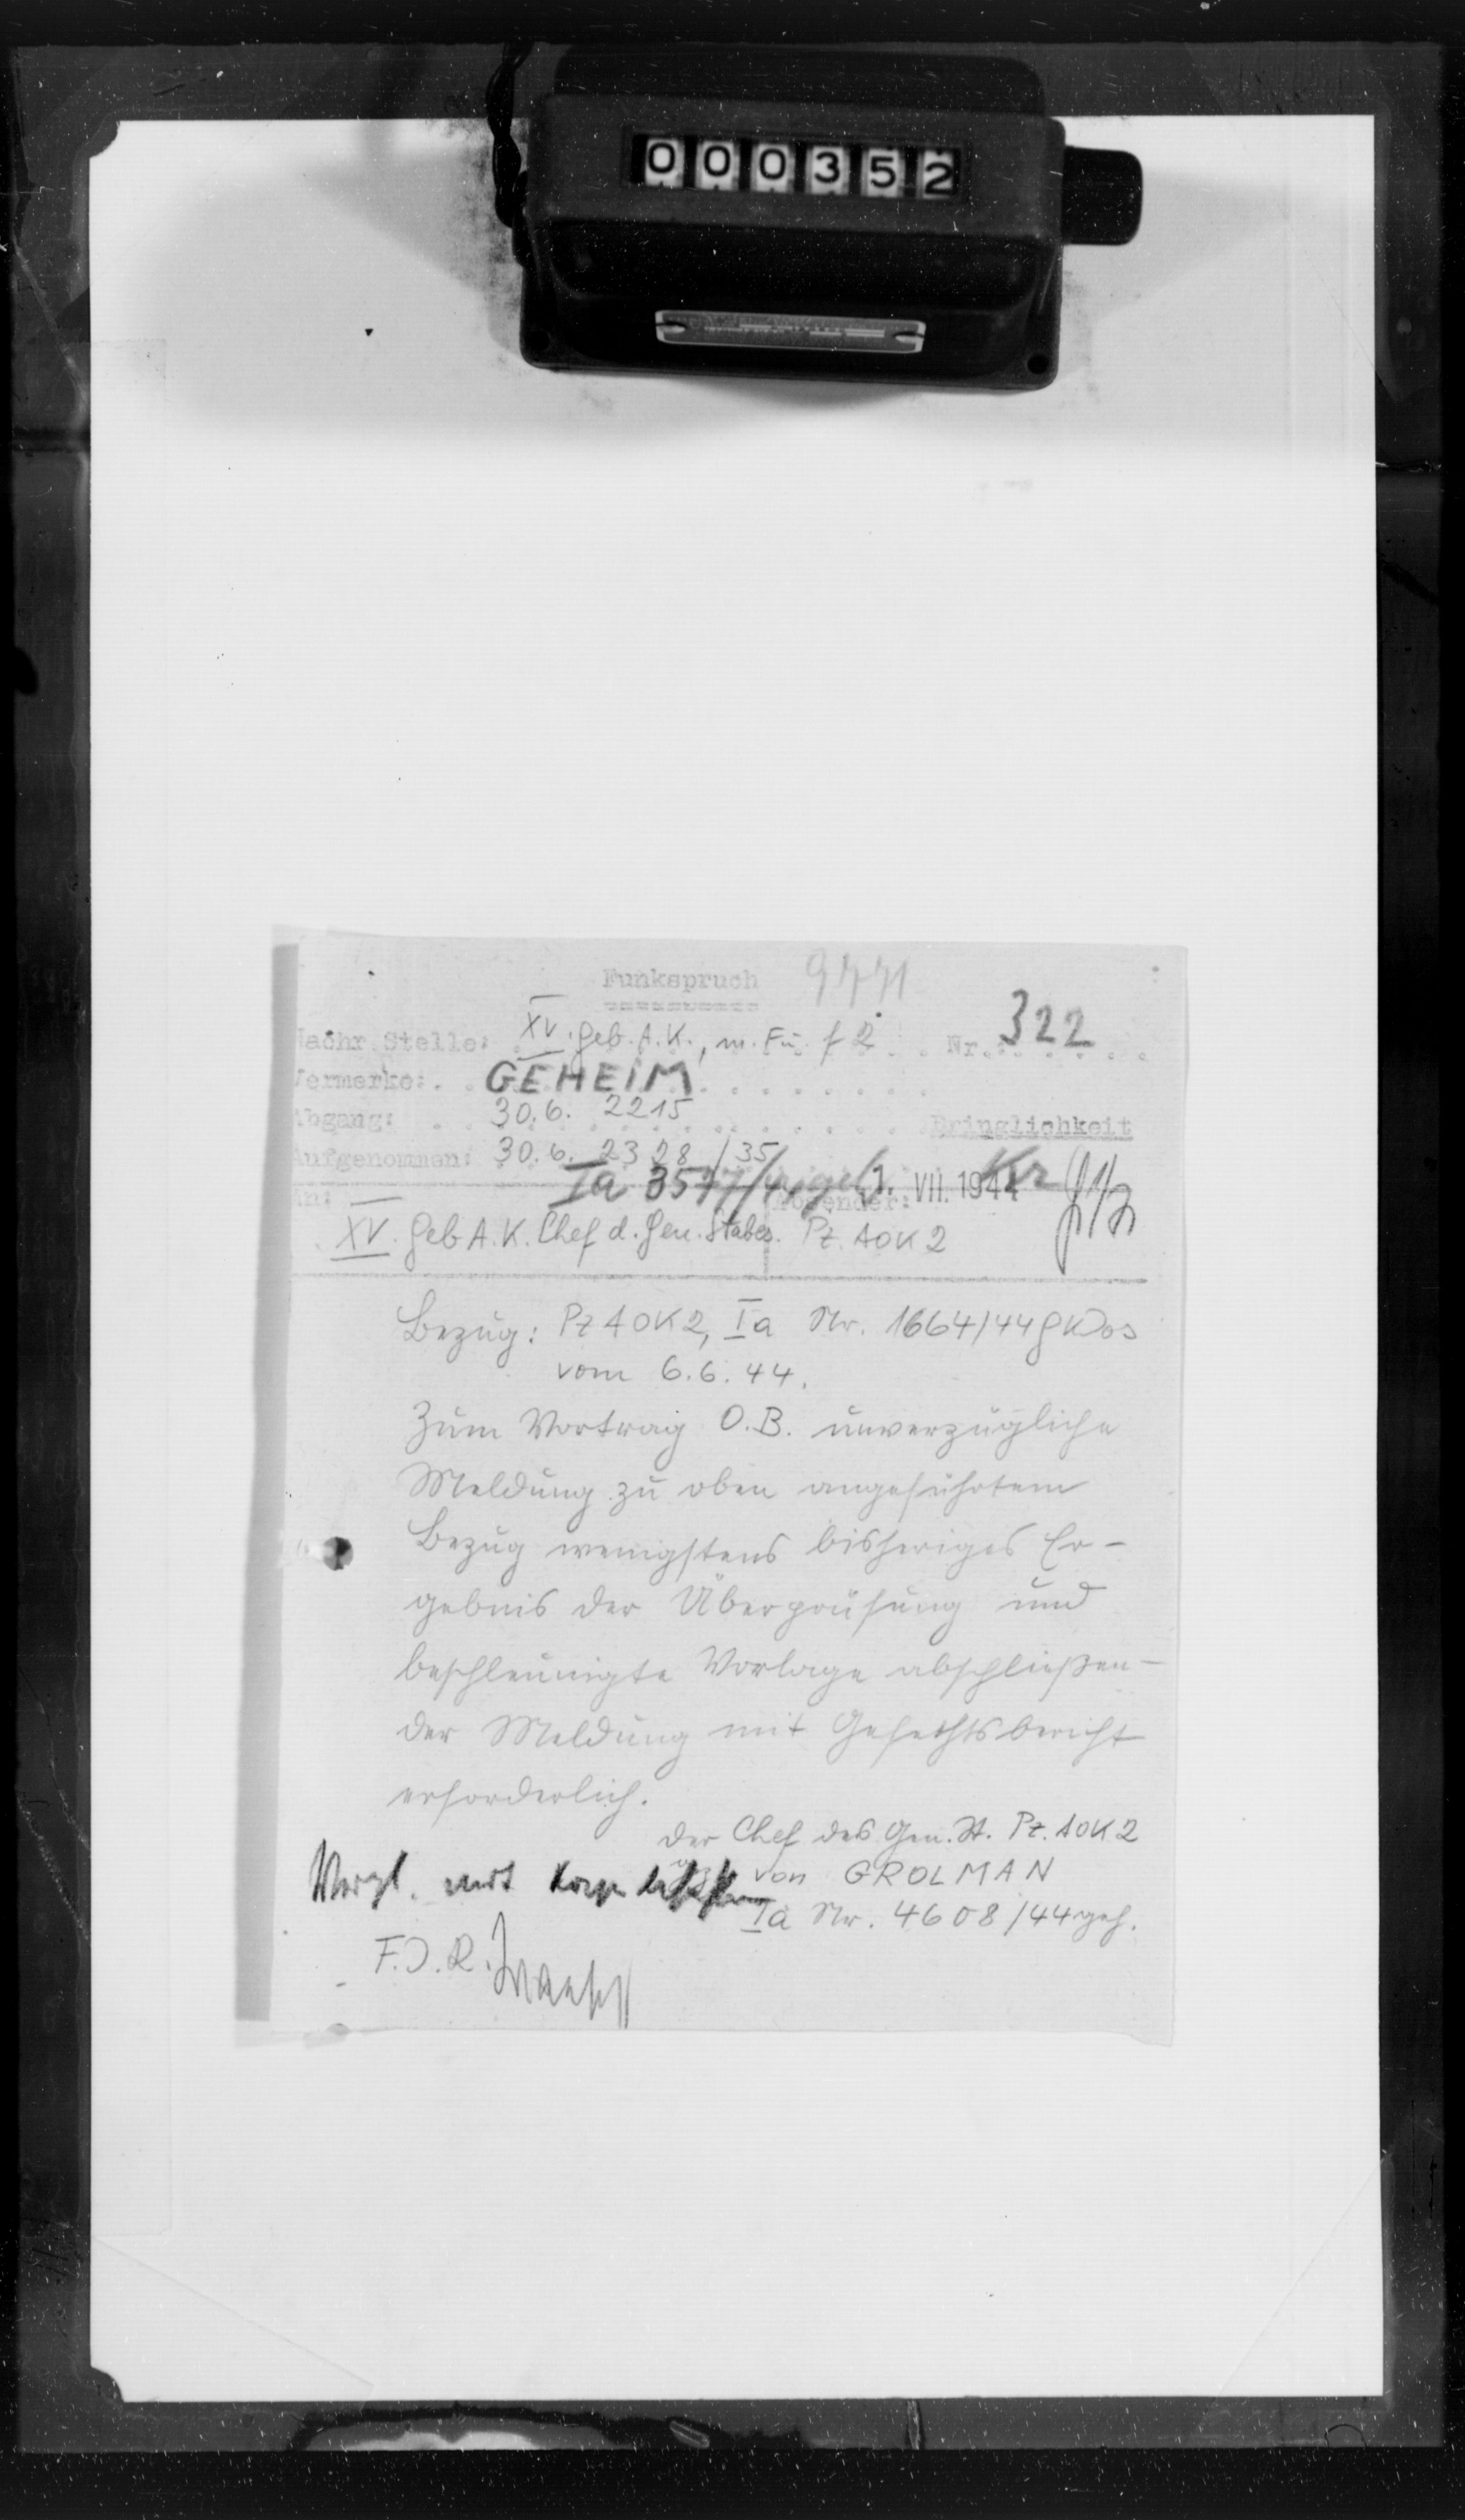 000352
Funkspruch 9771
Nachr.Stelle: XV. Geb. A.K., m. Fu. f 2 Nr.: 322
Vermerke: GEHEIM
Abgang: 30.6. 2215 Dringlichkeit
Aufgenommen: 30.6. 2328/35
Ia 3577/44 geh. 1. VII. 1944
An: Absender:
XV. Geb A.K. Chef d. Gen. Stabes. Pz. AOK 2
Bezug: Pz AOK 2, Ia Nr. 1664/44 gKdos
vom 6.6.44.
Zum Vortrag O.B. unverzügliche
Meldung zu oben angeführtem
Bezug wenigstens bisheriges Er-
gebnis der Überprüfung und
beschleunigte Vorlage abschließen-
der Meldung mit Gefechtsbericht
erforderlich.
Der Chef des Gen. St. Pz. AOK 2
von GROLMAN
Ia Nr. 4608/44 geh.
F.d.R.